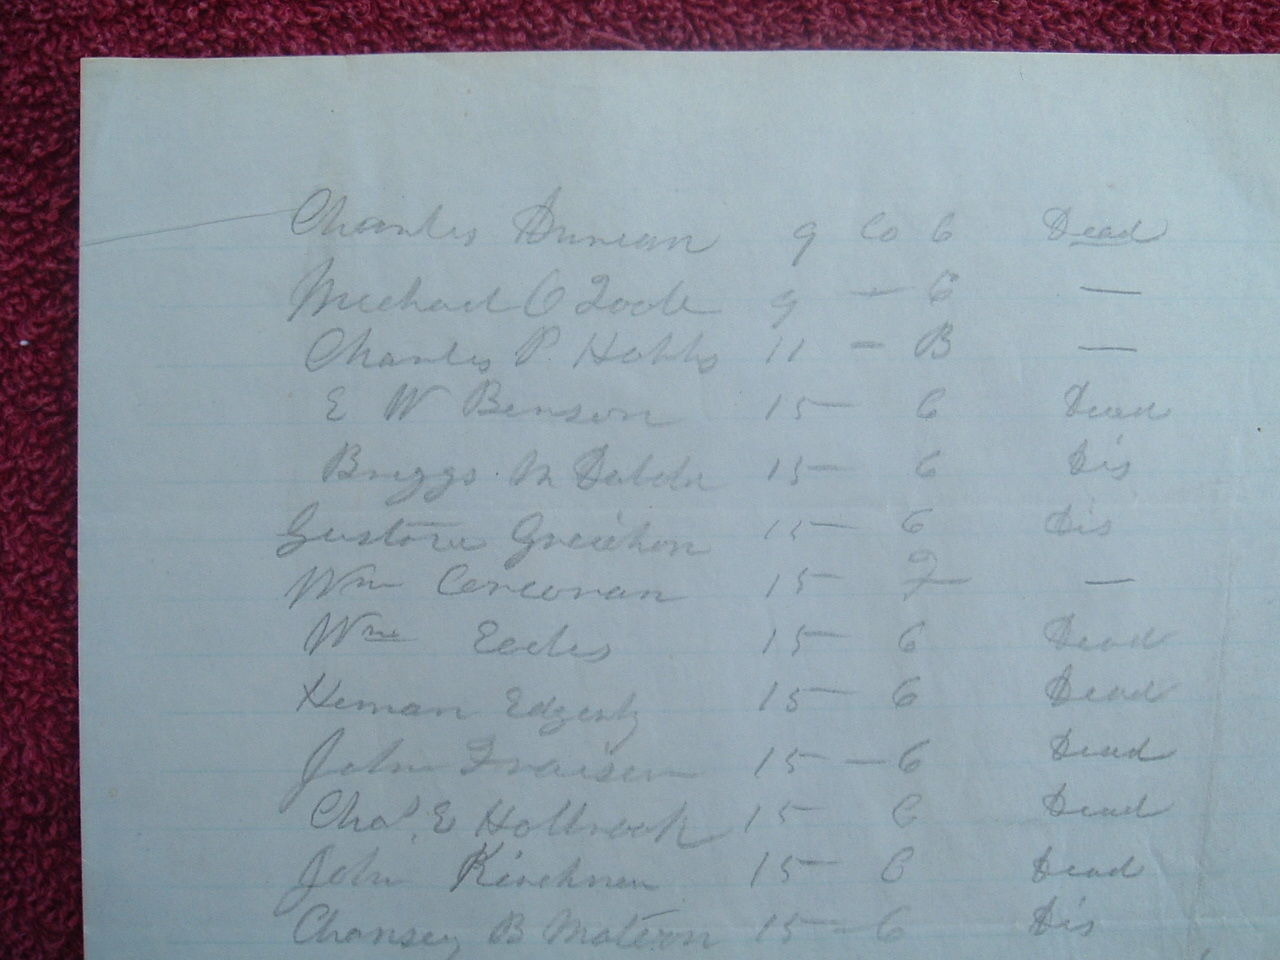 Charles Duncan 9 Co G Dead
Michael O Toole 9 — G —
Charles P. Hobbs 11 — B —
E W Benson 15 — G Dead
Briggs M 15 — G Dis
Gustave 15 — G Dis
Wm Corcoran 15 —
Wm Eccles 15 — G Dead
Heman Edgerly 15 — G Dead
John 15 — G Dead
Chas. E Holbrook 15 Dead
John Kirchner 15 — Dead
Chansey B Matison 15 — G Dis